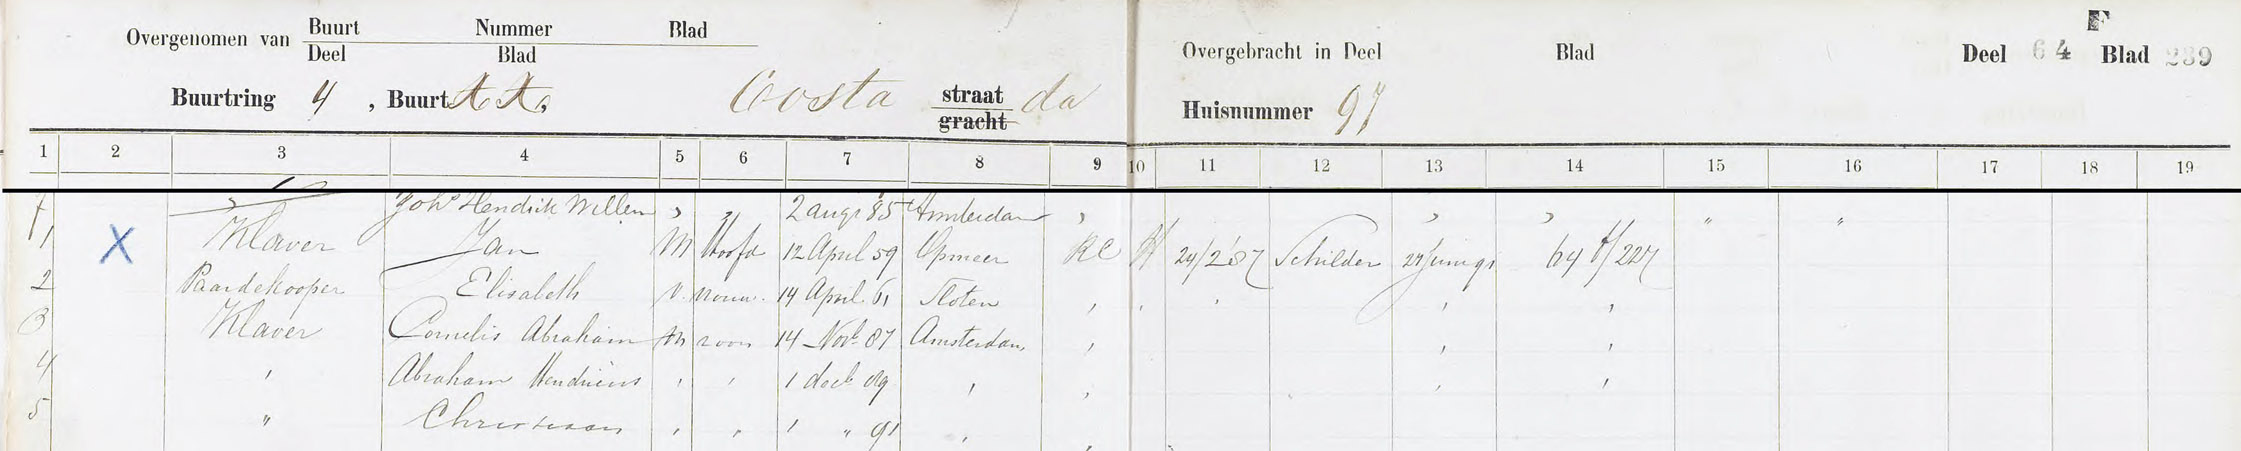 F
Overgenomen van Buurt Nummer Blad
Deel Blad
Overgebracht in Deel Blad Deel 64 Blad 239
Buurtring 4, Buurt Costa straat da
gracht
Huisnummer 97
1 2 3 4 5 6 7 8 9 10 11 12 13 14 15 16 17 18 19
7 " Joh⁠s Hendrik Willem " " 2 aug 85 Amsterdam " " " " "
1 X Klaver Jan M Hoofd 12 April 59 Opmeer RC H 24/2 '87 Schilder 64 F/227
2 Paardekooper Elisabeth V. vrouw. 14 April 61 Sloten " " " " "
3 Klaver Cornelis Abraham M zoon 14 Nov 87 Amsterdam " " "
4 " Abraham Hendricus " " 1 dec 89 " " " "
5 " Christiaan " " " " 91 " "